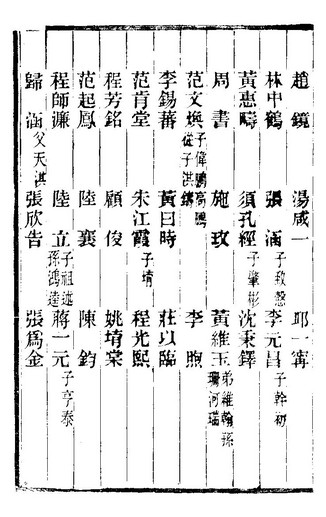 趙鏡 湯咸一 邱一甯
林中鶴 張涵子政愨 李元昌子幹初
黃惠疇 須孔經子肇彬 沈秉鐸
周書 施政 黃維玉弟維翰孫珊河瑞
范文煥子偉鵬高鵬從子淇 李煦
李錫蕃 黃曰時 莊以臨
范肯堂 朱江霞子堉 程光熙
程芳銘 顧俊 姚堉棠
范起鳳 陸襄 陳鈞
程師濂 陸立子祖述孫鴻逵 蔣一元子亨泰
歸涵父天淇 張欣告 張為金